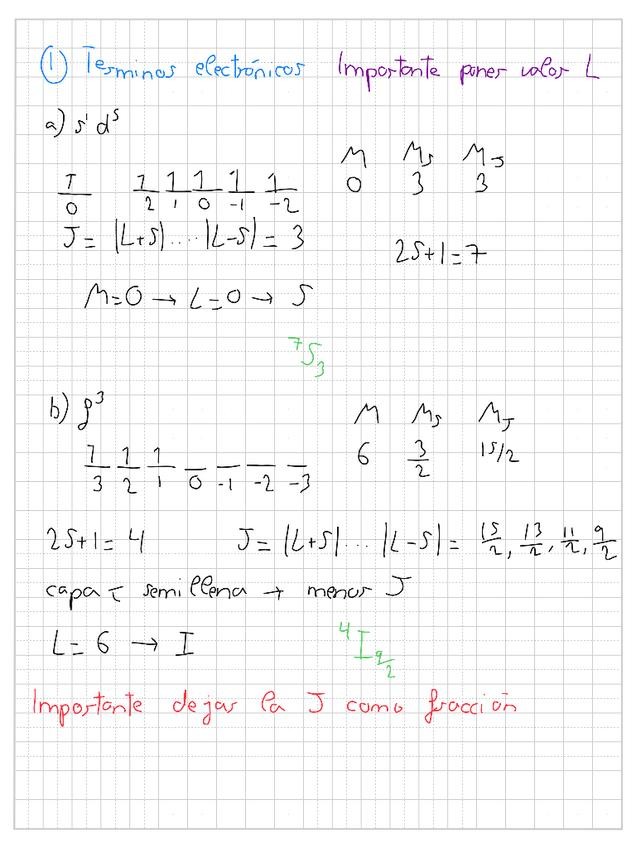 ① Terminos electrónicos Importante poner valor L
a) s¹ d⁵
M Ms MJ
1 1 1 1 1 1 0 3 3
0 2 1 0 -1 -2
J = |L+S| .... |L-S| = 3
2S+1 = 7
M=0 → L=0 → S
⁷S₃
b) f³
M Ms MJ
1 1 1 6 3/2 15/2
3 2 1 0 -1 -2 -3
2S+1 = 4 J = |L+S| ... |L-S| = 15/2, 13/2, 11/2, 9/2
capa < semillena → menor J
L = 6 → I
⁴I9/2
Importante dejar la J como fracción